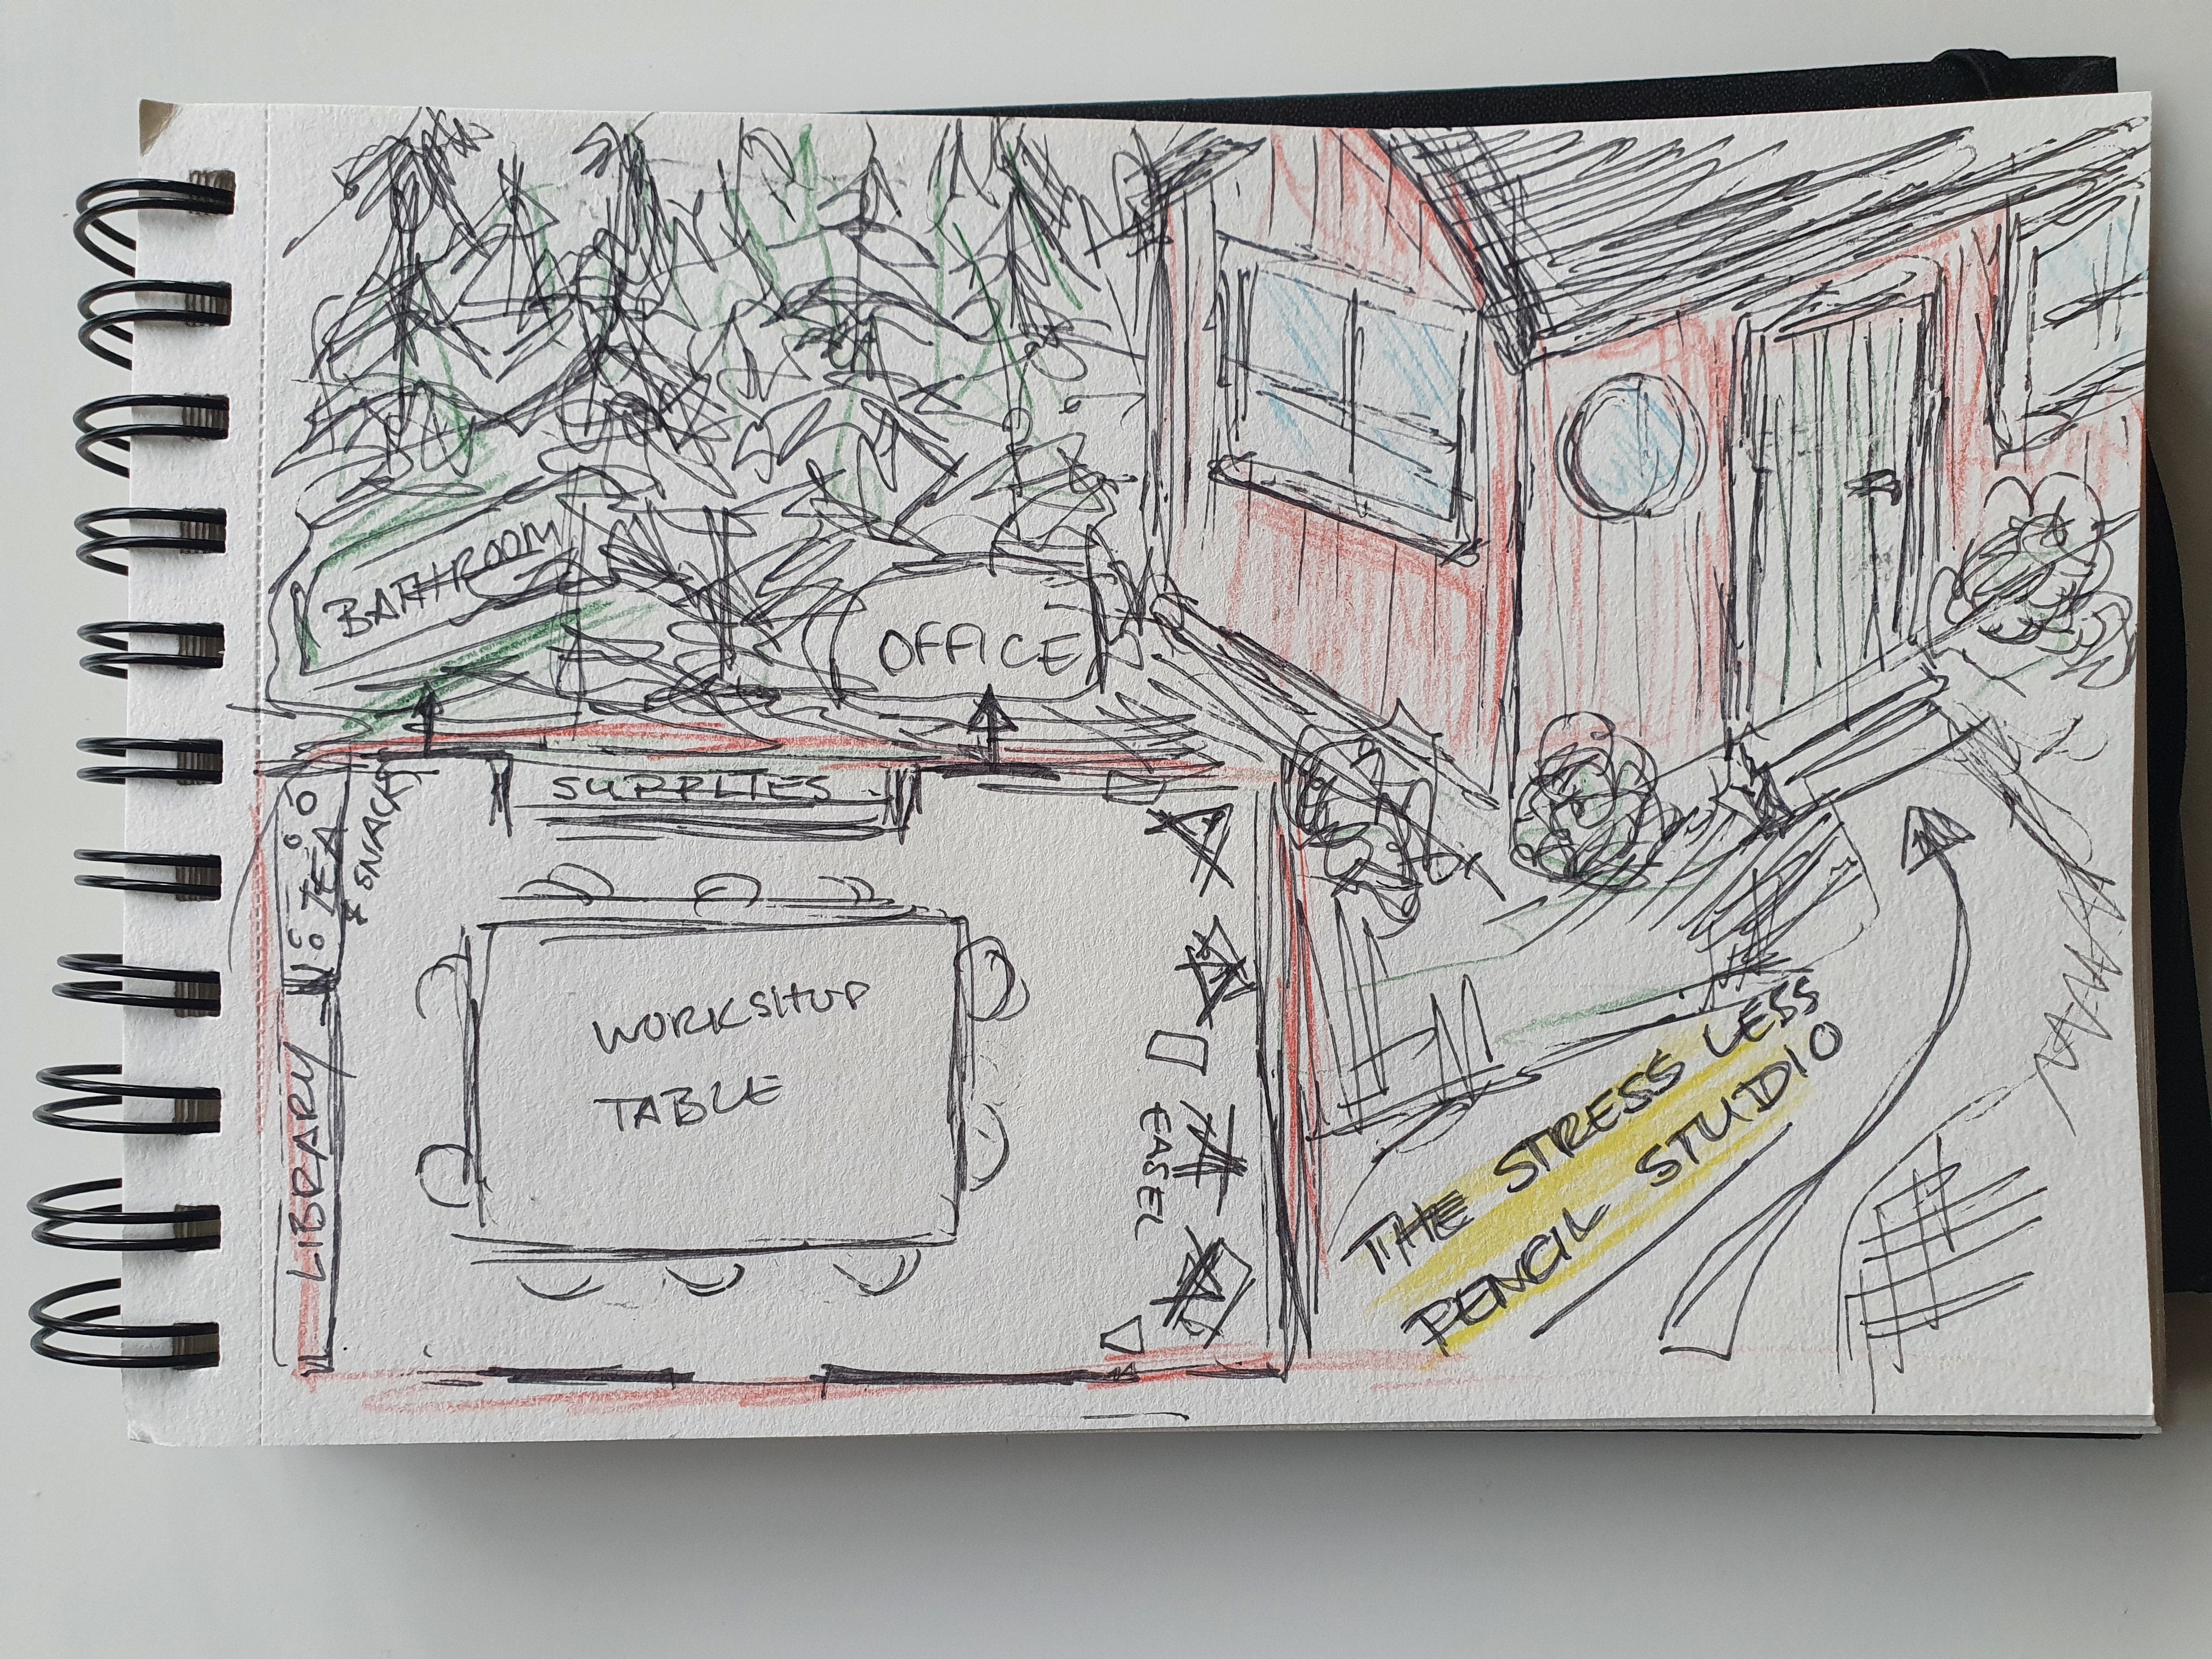 BATHROOM
OFFICE
SUPPLIES
TEA
& SNACKS
WORKSHOP
TABLE
LIBRARY
EASEL
THE STRESS LESS
PENCIL STUDIO